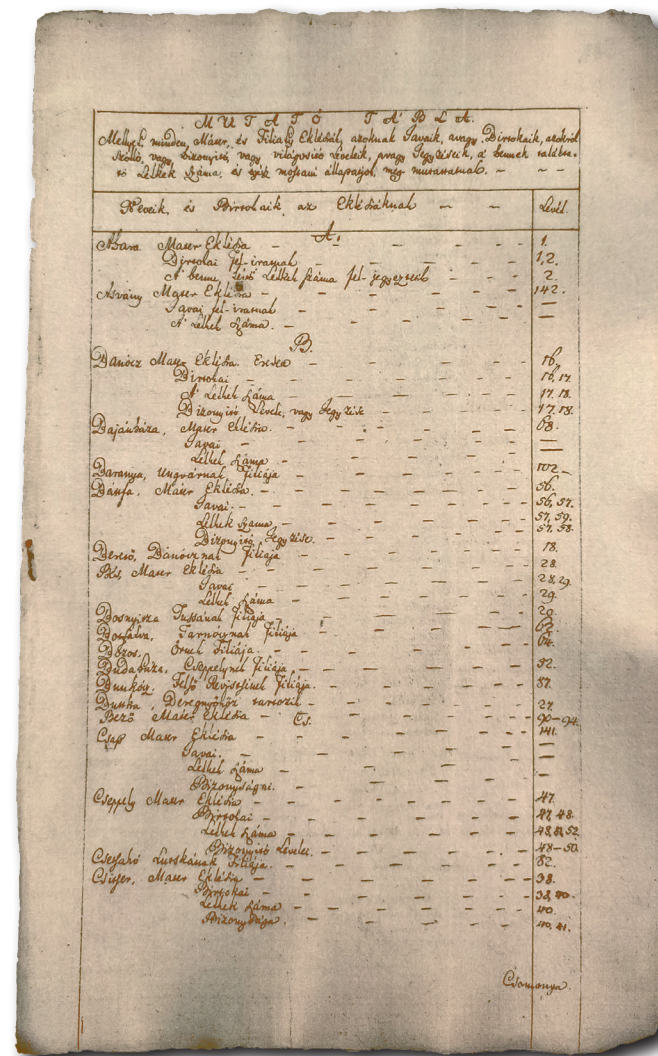 MUTATÓ TÁBLA.
Mellyel, minden, Máter, és Filialy Eklésiák, azoknak Javaik, avagy Birtokaik, azokról
szolló, vagy bizonyitó, vagy világositó Levelik, avagy Jegyzéseik, a' bennek találta-
tó Lelkek Száma, és azok mostani állapatjok, meg mutattatnak. – ~ –
Neveik, és Birtokaik az Eklésiáknak – – Levél.
A.
Abara Mater Eklésia – 1.
Birtokai fel-iratnak – 1, 2.
A' benne lévő Lelkek száma fel-jegyeztetik – 2.
Asvány Mater Eklésia – 142.
Javai fel-iratnak – —
A' Lelkek száma. – —
B.
Bánócz Mater Eklésia. – 16.
Birtokai – 16, 17.
A' Lelkek száma – 17, 18.
Bizonyitó Levele, vagy Jegyzése – 17, 18.
Bajánháza, Mater Eklésia. – 68.
Javai – —
Lelkek száma – —
Baranya, Ungvárnak Filiája – 102 –
Bánfa, Mater Eklésia. – 56.
Javai. – 56, 57.
Lelkek száma, – 57, 59.
Bizonyitó Jegyzése. – 57, 58.
Beresö, Bánócznak Filiája – 18.
Bés, Mater Eklésia – 28.
Javai – 28, 29.
Lelkek száma – 29.
Bosnyicza Tussának Filiája, – 29.
Bosfalva, Tarnoynak Filiája – 62.
Bózos. Ornek Filiája. – 64.
Budaháza, Cseppelynek Filiája, – 52.
Bunkócz, Felső Révistyének Filiája. – 87.
Buttka, Deregnyőhöz tartozik – 27.
Bező Mater Eklésia – 90–94.
Cs.
Csap Mater Eklésia – 141.
Javai. – —
Lelkek száma – —
Bizonyságai. – —
Cseppely Mater Eklésia – 47.
Birtokai – 47, 48.
Lelkek száma – 48, 52.
Bizonyitó Levelei. – 48–50.
Csecsahó Lutskának Filiája. – 82.
Csicser, Mater Eklésia – 38.
Birtokai – 38, 40.
Lelkek száma – 40.
Bizonysága. – 40, 41.
Csomonya.